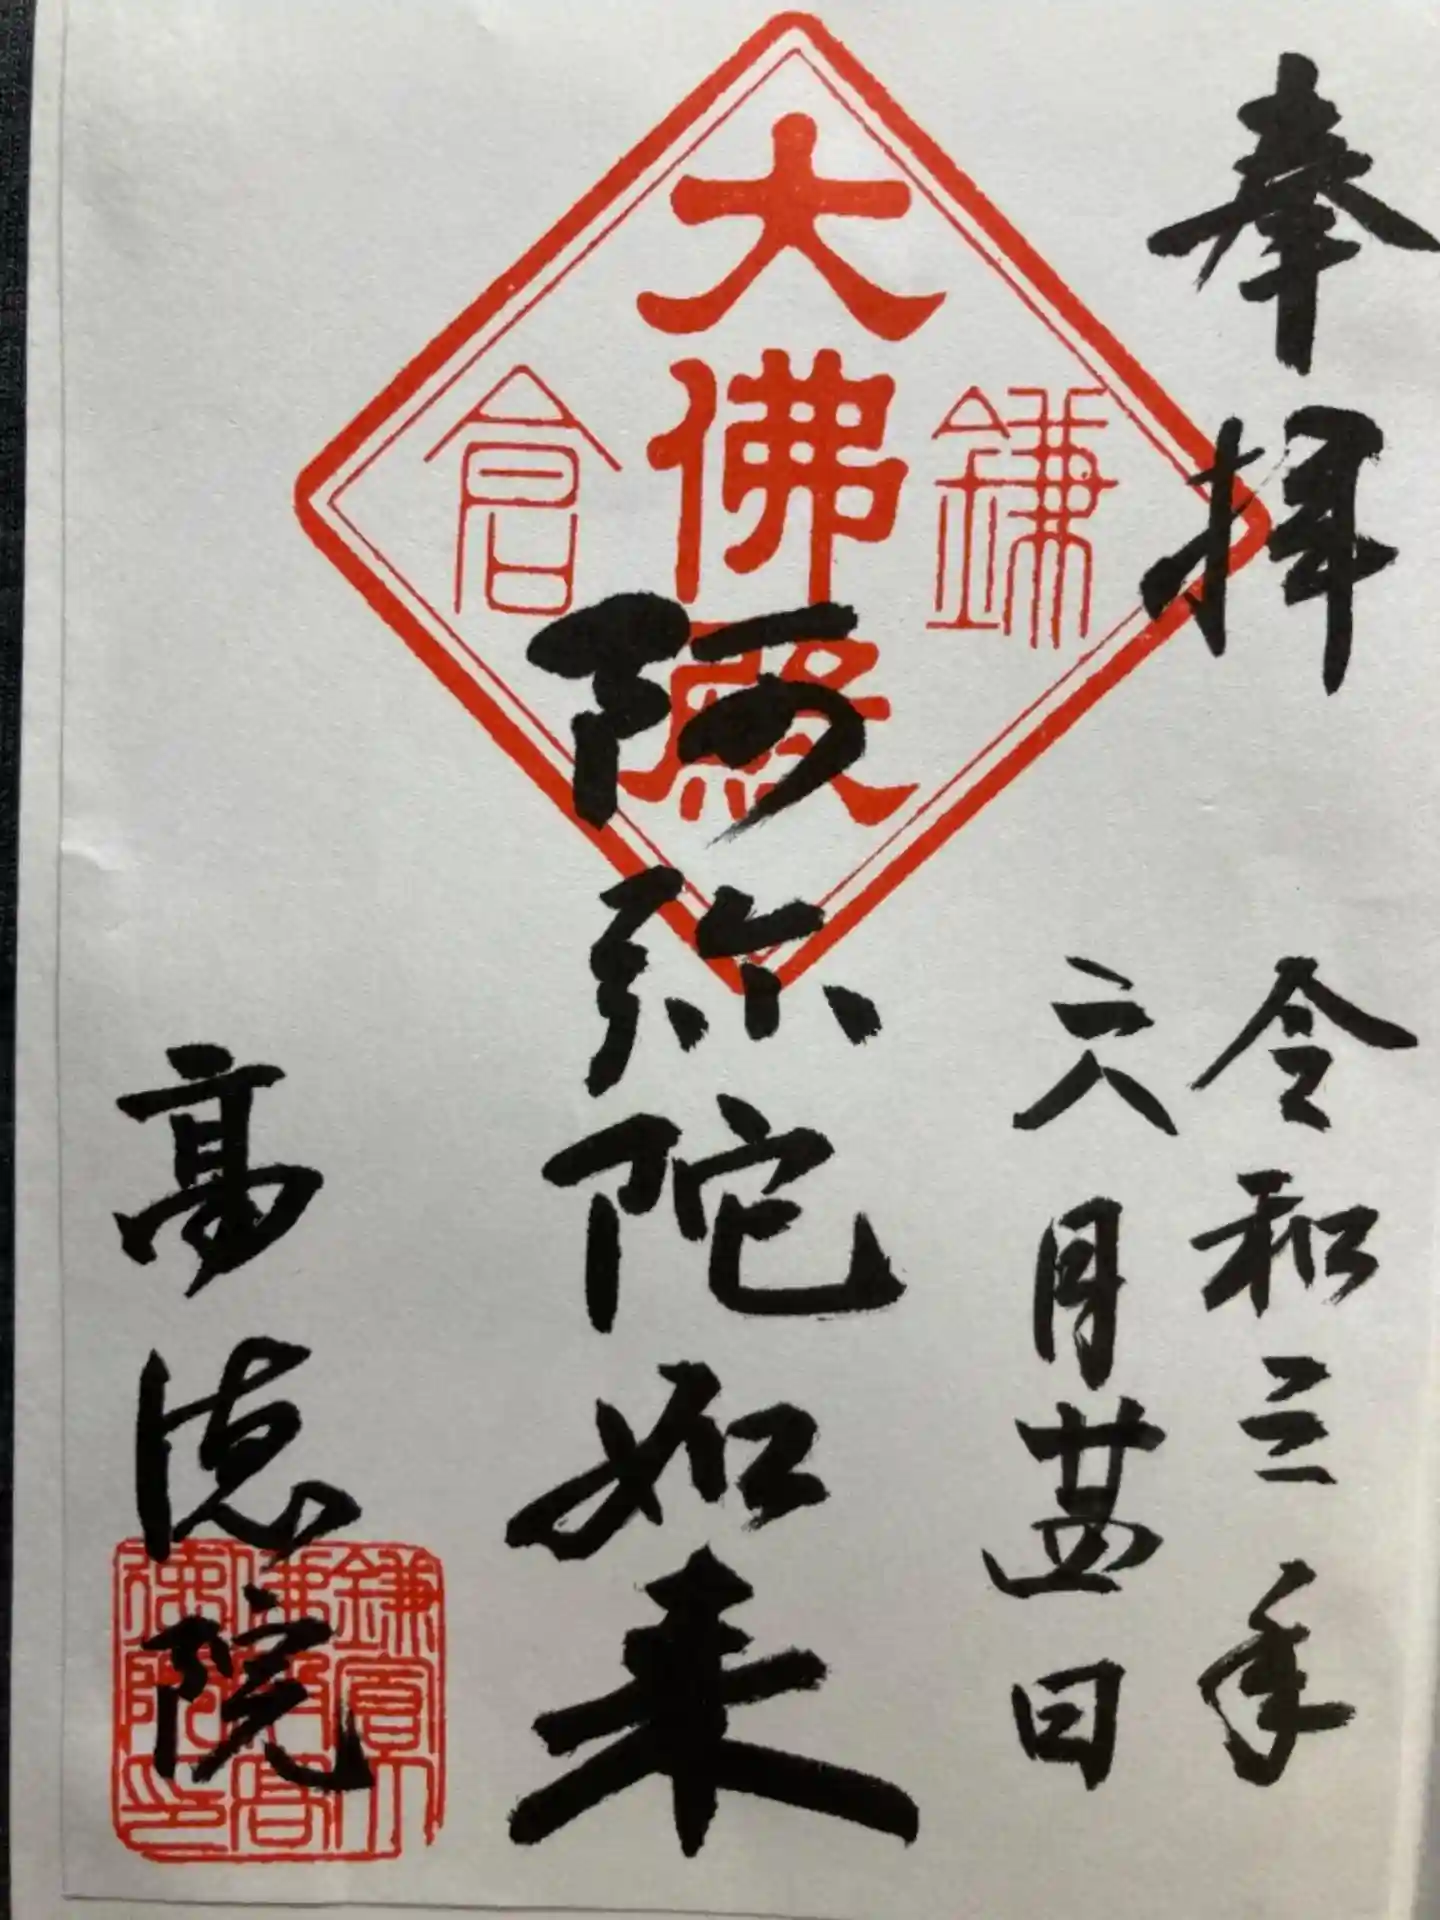 奉拝
令和三年
六月廿四日
鎌倉
大佛殿
阿弥陀如来
高徳院
鎌倉大佛殿高徳院印